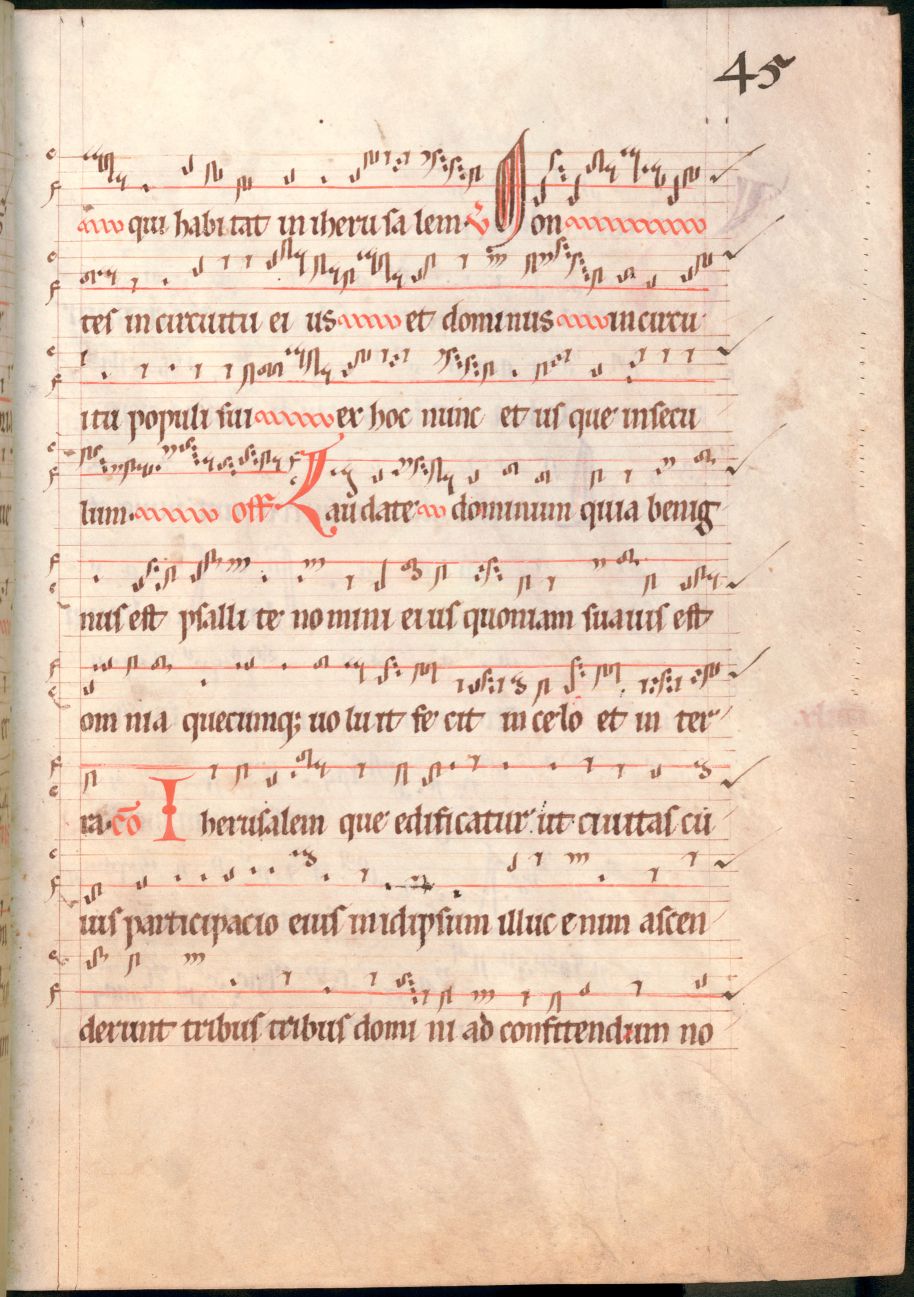 45
qui habitat in iherusalem. V Mon
tes in circuitu ei us et dominus in circu
itu populi sui ex hoc nunc et usque in secu
lum. off Laudate dominum quia benig
nus est psallite nomini eius quoniam suauis est
omnia quecumq; uoluit fecit in celo et in ter
ra. cō Iherusalem que edificatur ut ciuitas cu
ius participacio eius in idipsum illuc enim ascen
derunt tribus tribus domini ad confitendum no